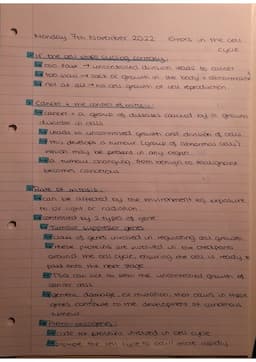 Monday 7th November 2022 Errors in the cell
cycle
If the cell stops cycling correctly
too fast → uncontrolled division leads to cancer
too slow → lack of growth in the body +
not at all → no cell growth or cell reproduction
Cancer + the control of mitosis
cancer = a group of diseases caused by a growth
disorder in cells
leads to uncontrolled growth and division of cells
this develops a tumour (group of abnormal cells)
which may be present in any organ
a tumour changing from benign to malignant
becomes cancerous
Rate of mitosis
can be affected by the environment eg exposure
to UV light or radiation
controlled by 2 types of gene
Tumour suppressor genes
class of genes involved in regulating cell growth
these proteins are involved in the checkpoints
around the cell cycle, ensuring the cell is ready to
pass onto the next stage
TSGs can act to stop the uncontrolled growth of
cancer cells
genetic damage, or mutation that occurs in these
genes contribute to the development of cancerous
tumour
Proto-oncogenes
code for proteins involved in cell cycle
the cell cycle to occur more rapidly